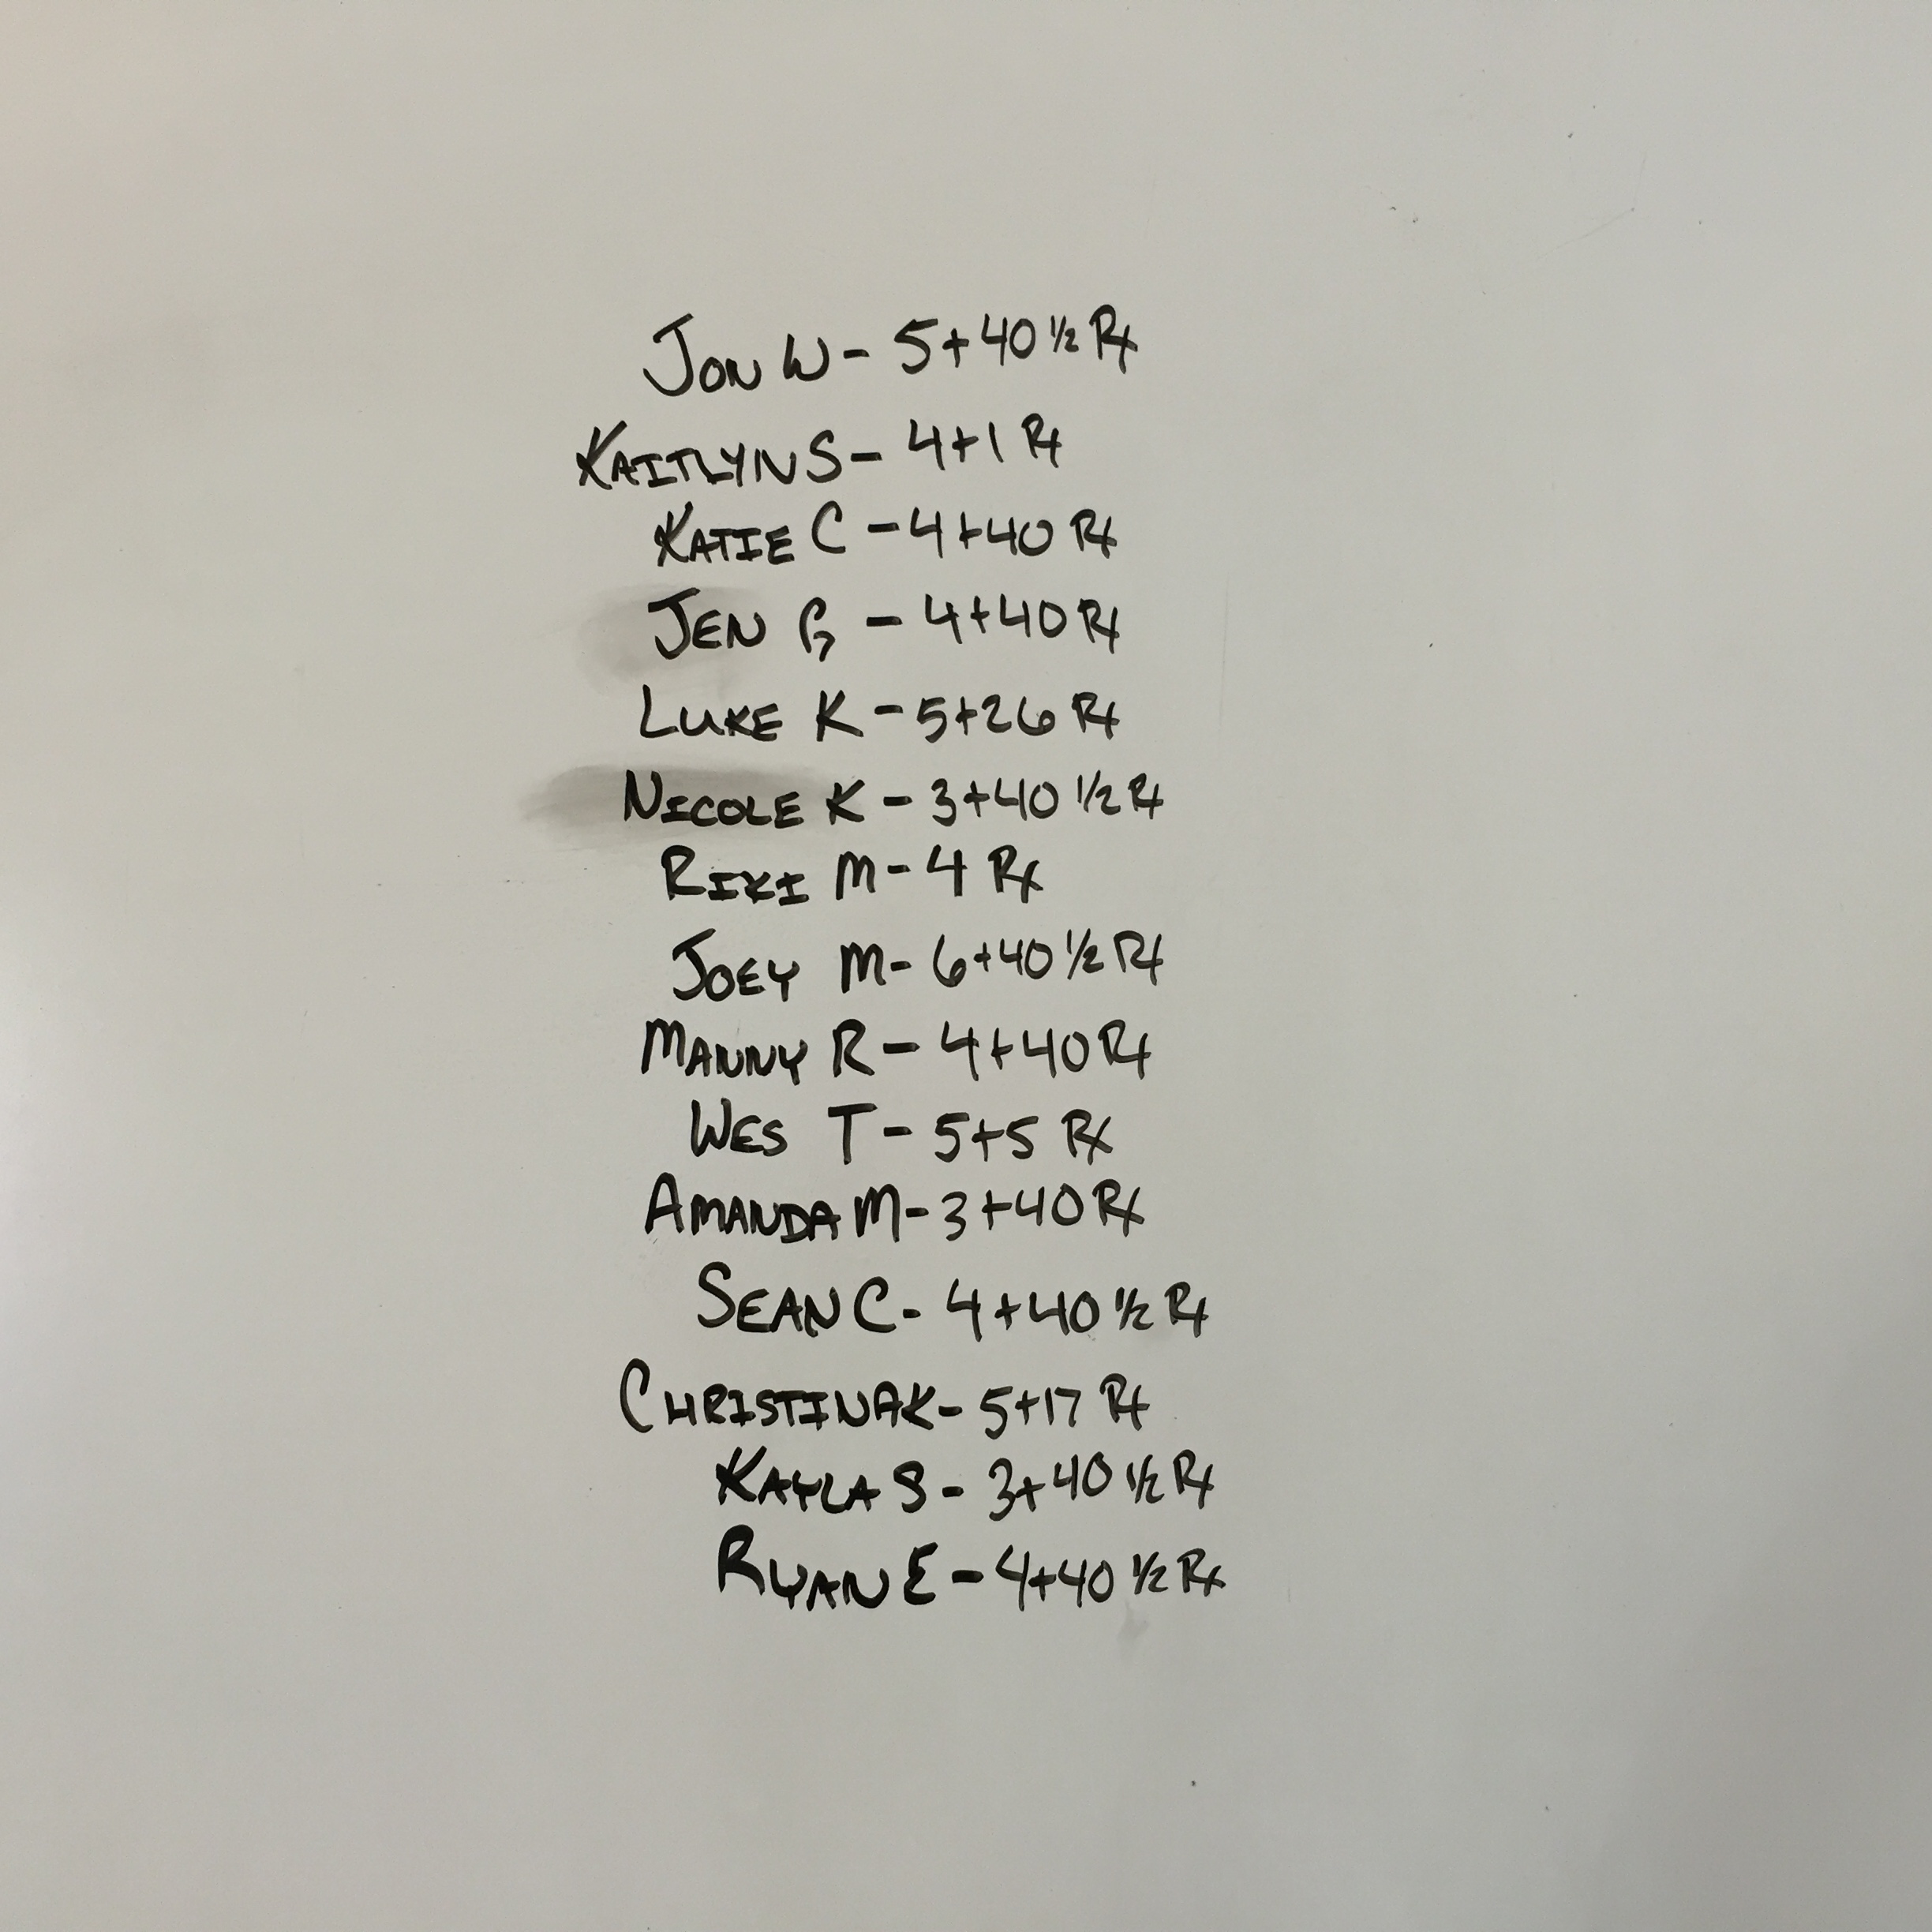 JON W - 5+40 ½ Rx
KAITLYN S - 4+1 Rx
KATIE C - 4+40 Rx
JEN G - 4+40 Rx
LUKE K - 5+26 Rx
NICOLE K - 3+40 ½ Rx
RIKI M - 4 Rx
JOEY M - 6+40 ½ Rx
MANNY R - 4+40 Rx
WES T - 5+5 Rx
AMANDA M - 3+40 Rx
SEAN C - 4+40 ½ Rx
CHRISTINA K - 5+17 Rx
KAYLA S - 3+40 ½ Rx
RYAN E - 4+40 ½ Rx